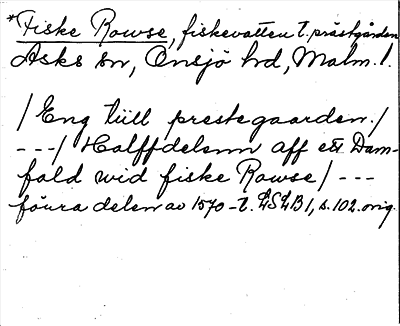 *Fiske Rowse, fiskevatten t. prästgården
Asks sn, Onsjö hd, Malm. l.
/ Eng tiill prestegaarden. /
---/ Halffdelenn aff ett Dam-
fald wid fiske Rowse / ---
förra delen av 1570-t. LSLB 1, s. 102. orig.